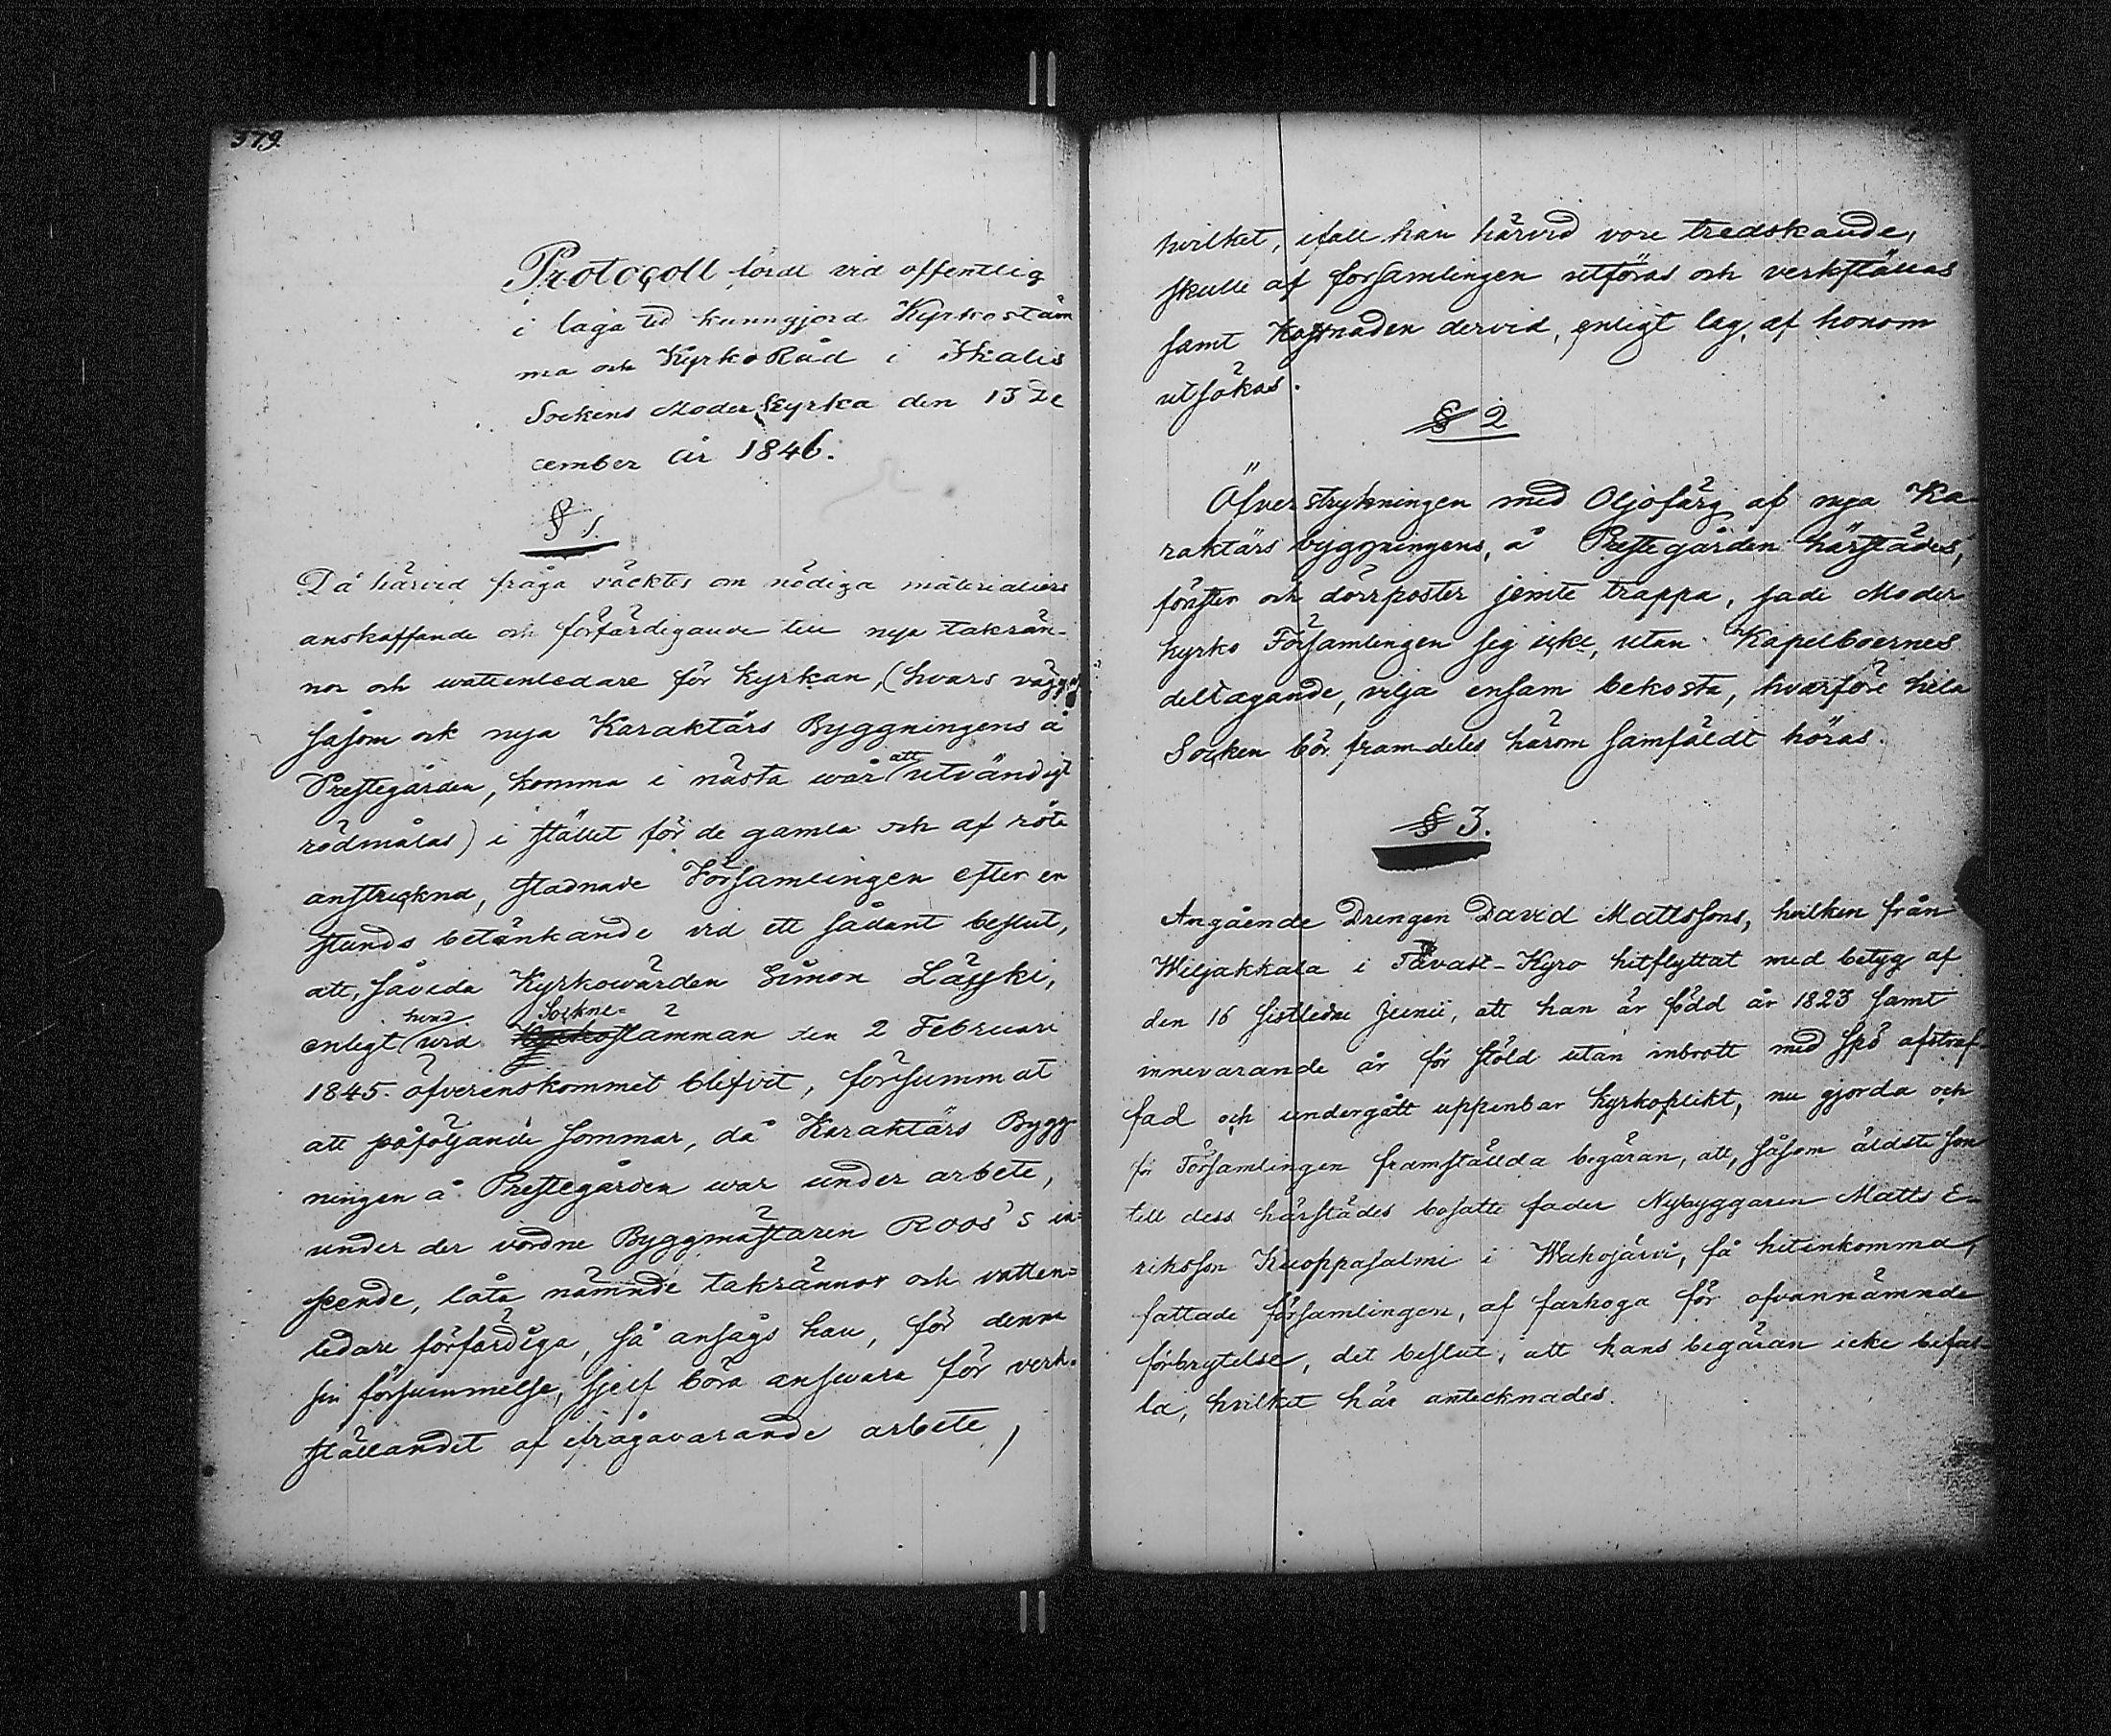 379.
Protocoll fördt vid offentlig
i laga tid kunngjord Kyrkostäm
ma och KyrkoRåd i Ikalis
Sockens Moderkyrka den 13 De
cember år 1846.
§ 1.
Då härvid fråga väcktes om nödiga materialiers
anskaffande och förfärdigande till nya takrän-
nor och wattenledare för Kyrkan, (hvars väggar
såsom ock nya Karaktärs Byggningens å
Prestegården, komma i nästa wår att utvändigt
rödmålas) i stället för de gamla och af röta
anstreckna, stadnade Församlingen efter en
stunds betänkande vid ett sådant beslut,
att, såvida Kyrkowärden Simon Läyski,
enligt hvad vid Sockne-stämman den 2 Februari
1845. öfverenskommet blifvit, försummat
att påföljande sommar, då Karaktärs Bygg-
ningen å Prestegården war under arbete,
under der vordne Byggmästaren Roos's in-
seende, låta nämnde takrännor och vatten-
ledare förfärdiga, så ansågs han, för denna
sin försummelse, sjelf böra answara för verk-
ställandet af ifrågavarande arbete,
hvilket, ifall han härvid vore tredskande,
skulle af församlingen utföras och verkställas
samt Kostnaden dervid, enligt lag, af honom
utsökas.
§ 2
Öfverstrykningen med Oljofärg af nya Ka-
raktärs byggningens, å Prestegården härstädes,
fönster och dörrposter jemte trappa, sade Moder
kyrko Församlingen sig icke, utan Kapelboernes
deltagande, vilja ensam bekosta, hvarföre hela
Socken bör framdeles härom samfäldt höras.
§ 3.
Angående Drengen David Mattssons, hvilken från
Wiljakkala i Tavast-Kyro hitflyttat med betyg af
den 16 sistledne Junii, att han är född år 1823 samt
innevarande år för stöld utan inbrott med spö afstraf-
fad och undergått uppenbar kyrkoplikt, nu gjorda och
för Församlingen framställda begäran, att, såsom äldste son
till dess härstädes bosatte fader Nybyggaren Matts E-
riksson Kuoppasalmi i Wahojärvi, få hitinkomma,
fattade församlingen, af farhoga för ofvannämnde
förbrytelse, det beslut, att hans begäran icke bifal-
la, hvilket här antecknades.